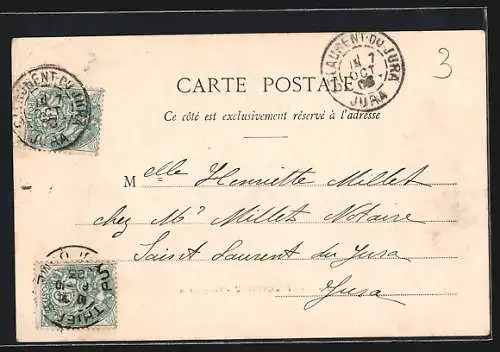 ST LAURENT-DU-JURA
7
OCT
JURA
3
CARTE POSTALE
Ce côté est exclusivement réservé à l'adresse
Melle Henriette Millet
chez Mr Millet Notaire
Saint Laurent du Jura
Jura